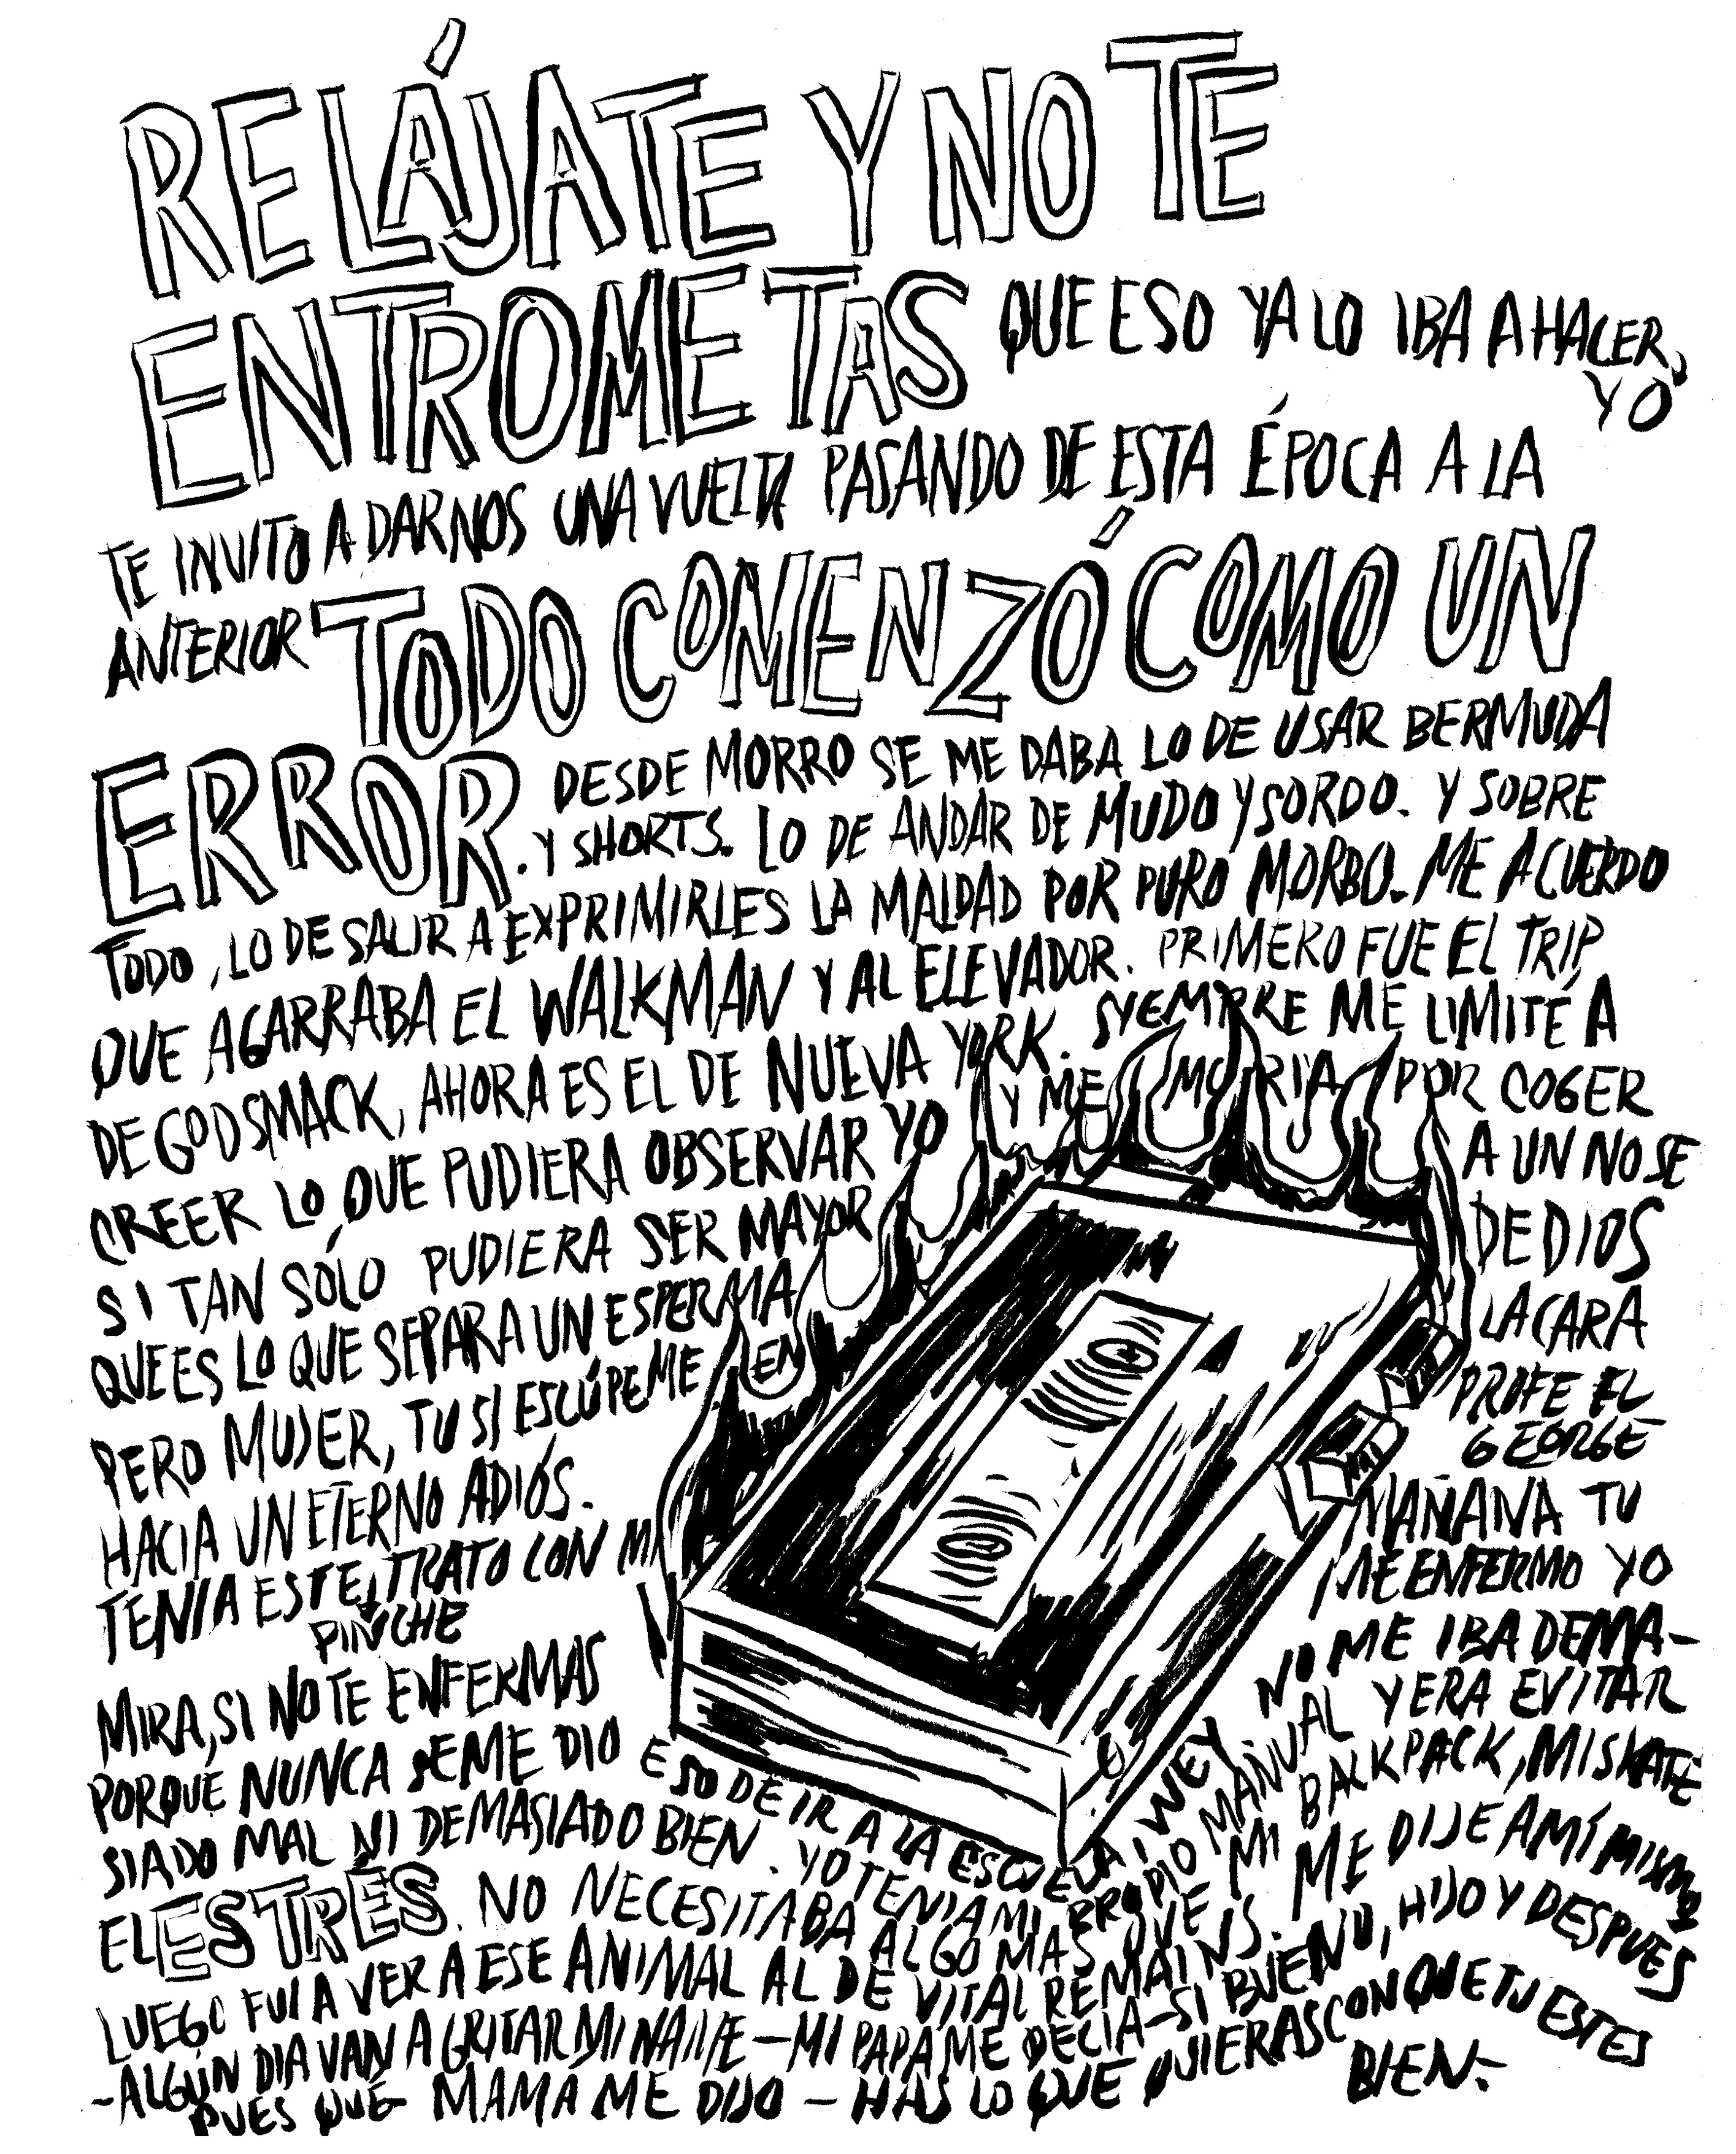 RELÁJATE Y NO TE
ENTROMETAS QUE ESO YA LO IBA A HACER,
YO
TE INVITO A DARNOS UNA VUELTA PASANDO DE ESTA ÉPOCA A LA
ANTERIOR TODO COMENZÓ COMO UN
ERROR. DESDE MORRO SE ME DABA LO DE USAR BERMUDA
Y SHORTS. LO DE ANDAR DE MUDO Y SORDO. Y SOBRE
TODO, LO DE SALIR A EXPRIMIRLES LA MALDAD POR PURO MORBO. ME ACUERDO
QUE AGARRABA EL WALKMAN Y AL ELEVADOR. PRIMERO FUE EL TRIP
DE GODSMACK, AHORA ES EL DE NUEVA YORK. SIEMPRE ME LIMITÉ A
CREER LO QUE PUDIERA OBSERVAR YO Y ME MORIA POR COGER
SI TAN SÓLO PUDIERA SER MAYOR A UN NO SE
QUE ES LO QUE SEPARA UN ESPERMA DE DIOS
PERO MUJER, TU SI ESCÚPEME EN LA CARA
HACIA UN ETERNO ADIÓS.
TENIA ESTE TRATO CON MI PROFE EL
PINCHE GEORGE
MIRA, SI NO TE ENFERMAS MAÑANA TU
ME ENFERMO YO
PORQUE NUNCA SE ME DIO ESO DE IR A LA ESCUELA WEY NO ME IBA DEMA-
SIADO MAL NI DEMASIADO BIEN. YO TENIA MI PROPIO MANUAL Y ERA EVITAR
EL ESTRÉS. NO NECESITABA ALGO MAS QUE MI BACKPACK, MI SKATE
LUEGO FUI A VER A ESE ANIMAL AL DE VITAL REMAINS. ME DIJE A MÍ MISMO
-ALGÚN DIA VAN A GRITAR MI NAME- MI PAPA ME DECIA -SI BUENO, HIJO Y DESPUES
PUES QUÉ- MAMÁ ME DIJO - HAS LO QUE QUIERAS CON QUE TU ESTES
BIEN-